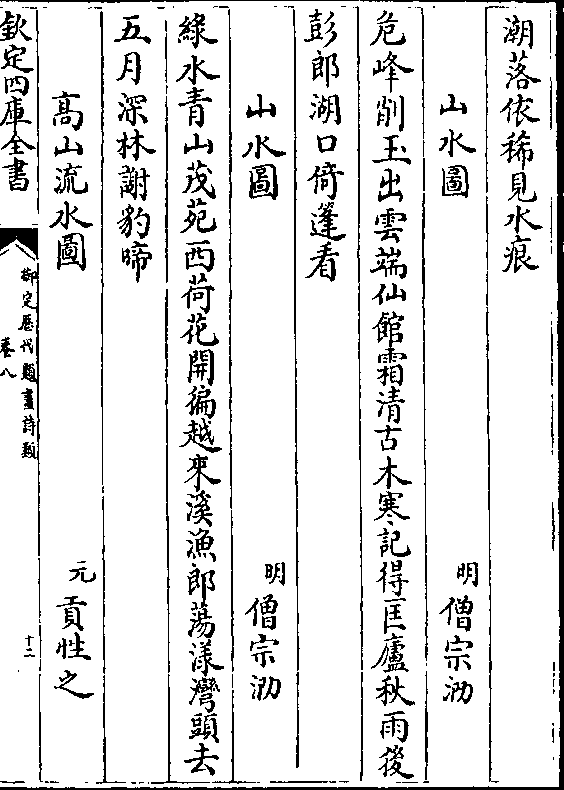 潮落依稀見水痕
山水圖 明 僧宗泐
危峰削玉出雲端仙館霜清古木寒記得匡廬秋雨後
彭郎湖口倚篷看
山水圖 明 僧宗泐
綠水青山茂苑西荷花開徧越來溪漁郎蕩漾灣頭去
五月深林謝豹啼
高山流水圖 元 貢性之
欽定四庫全書
御定歷代題畫詩類
卷八
十二